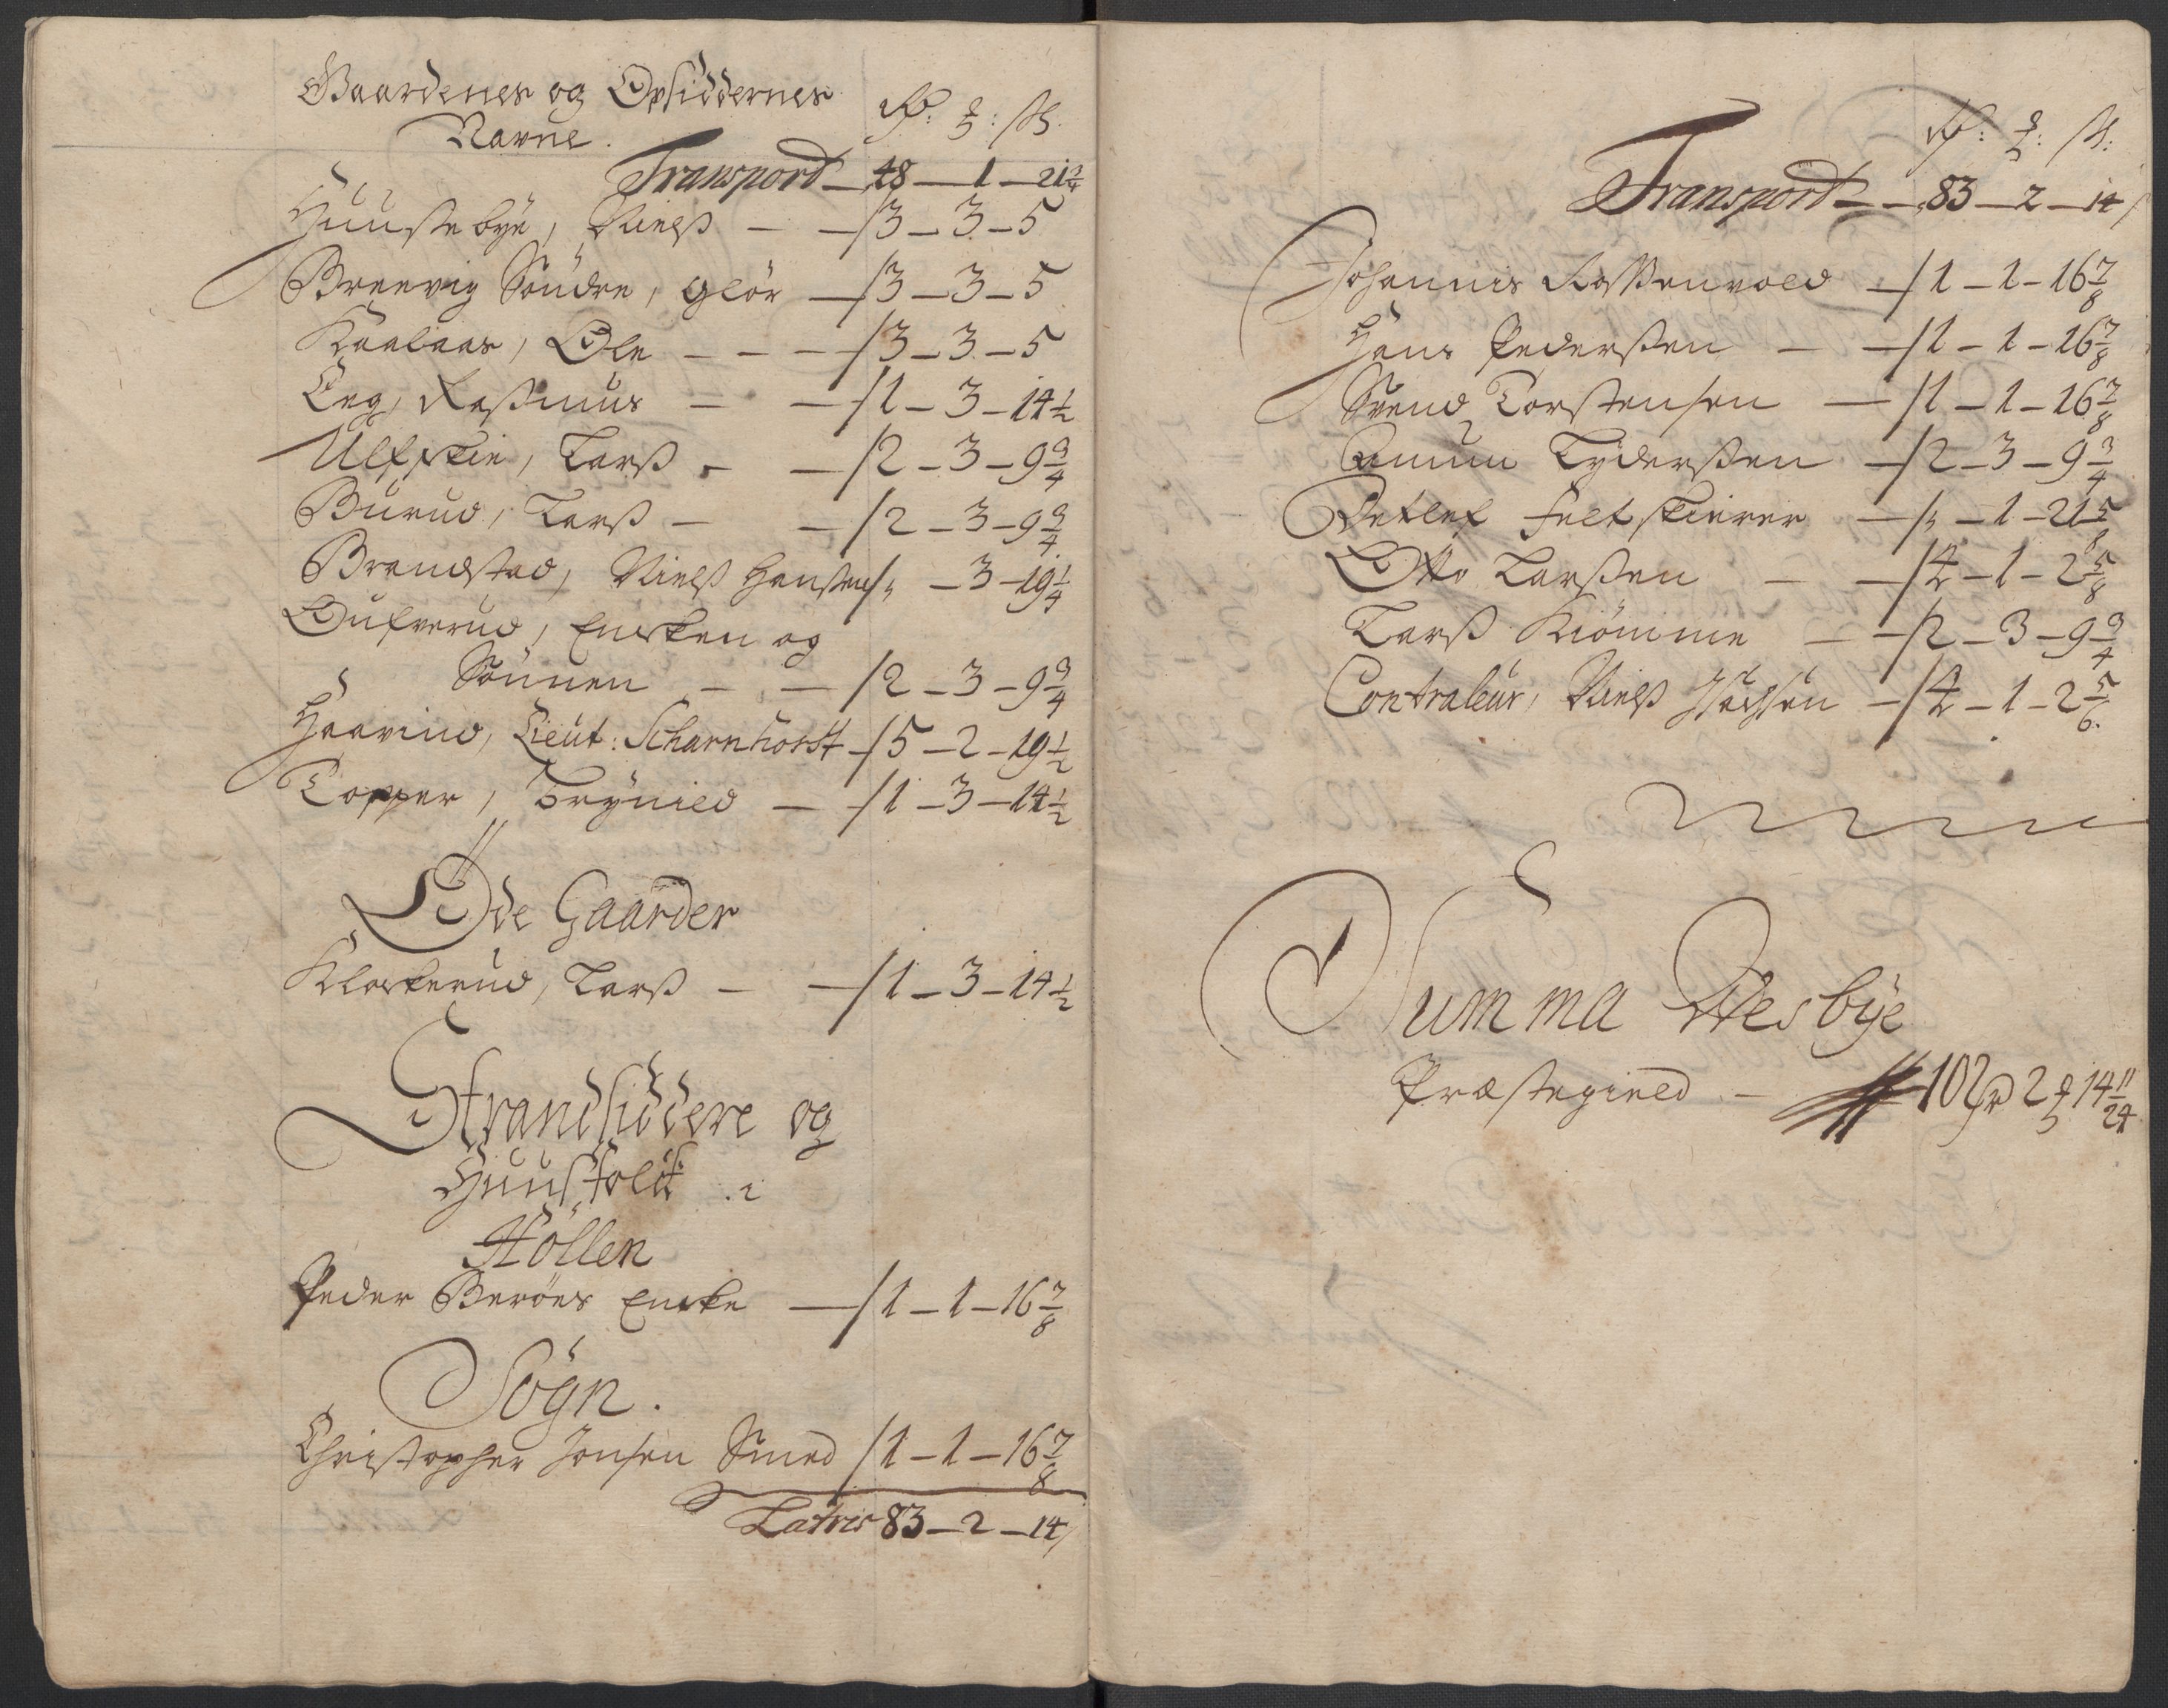 Gaardenes og Opsiddernes
Navne. Rdr: ₰: ß.
Transport — 48 — 1 — 21 3/4
Huustebÿe, Nielß — — 3 — 3 — 5
Breevig Söndre, Glör — 3 — 3 — 5
Kaalaas, Ole — — — 3 — 3 — 5
Eeg, Raßmus — — 1 — 3 — 14 1/2
Ulfskie, Larß — — 2 — 3 — 9 3/4
Burud, Larß — — 2 — 3 — 9 3/4
Brandstad, Nielß Hanßen " — 3 — 19 1/4
Oufverud, Encken og
Sönnen — — 2 — 3 — 9 3/4
Haavind, Lieut: Scharnhorst — 5 — 2 — 19 1/2
Topper, Brÿnild — 1 — 3 — 14 1/2
Öde Gaarder
Klockerud, Larß — — 1 — 3 — 14 1/2
Strandsiddere og
Huusfolck i
Höllen
Peder Beröes Encke — 1 — 1 — 16 7/8
Sögn.
Christopher Jonsen Smed 1 — 1 — 16 7/8
Latris 83 — 2 — 14
Rdr: ₰: ß:
Transport — — 83 — 2 — 14
Johannis Roßenvold — 1 — 1 — 16 7/8
Hans Pederßen — — 1 — 1 — 16 7/8
Svend Torstensen — 1 — 1 — 16 7/8
Amun Tÿderßen — 2 — 3 — 9 3/4
Detlef Feltskierer — " — 1 — 21 5/8
Otto Larßen — — 4 — 1 — 2 5/8
Larß Kiömme — — 2 — 3 — 9 3/4
Contraleur, Nielß — 4 — 1 — 2 5/6
Summa Wesbÿe
Præstegield — 102 Rdr 2 ₰ 14 11/24